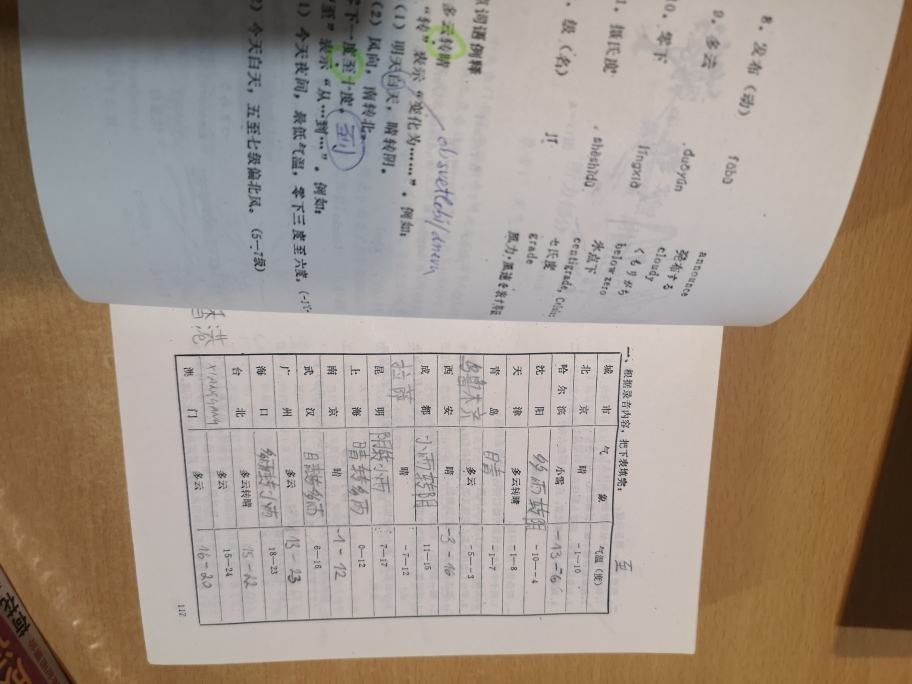 8. 发布（动） fābù announce 発布する
9. 多云 duōyún cloudy くもりがち
10. 零下 língxià below zero 氷点下
1. 摄氏度 shèshìdù centigrade, セ氏度
. 级（名） jí grade
点词语例释
多云转晴
“转”表示“变化为……”。例如：
（1）明天白天，晴转阴。
（2）风向，南转北。
零下一度至十度 到
“至”表示“从…到…”。例如：
1）今天夜间，最低气温，零下三度至六度，
2）今天白天，五至七级偏北风。（5—7级）
至
一、根据录音内容，把下表填完：
城市 气象 气温（度）
北京 晴 -1—10
哈尔滨 小雪 -13—-6
沈阳 多雨转阴 -10—-4
天津 多云转晴 -1—8
青岛 晴 -1—7
乌鲁木齐 多云 -5—-3
西安 晴 -3-16
成都 小雨转阴 11—15
拉萨 晴 -7—12
昆明 阴转小雨 7—17
上海 晴转多雨 0—12
南京 晴 -1-12
武汉 晴转多雨 6—16
广州 多云 13-23
海口 转小雨 18—23
台北 多云转晴 15-22
XIANGGANG 多云 15—24
澳门 多云 16-20
香港
117